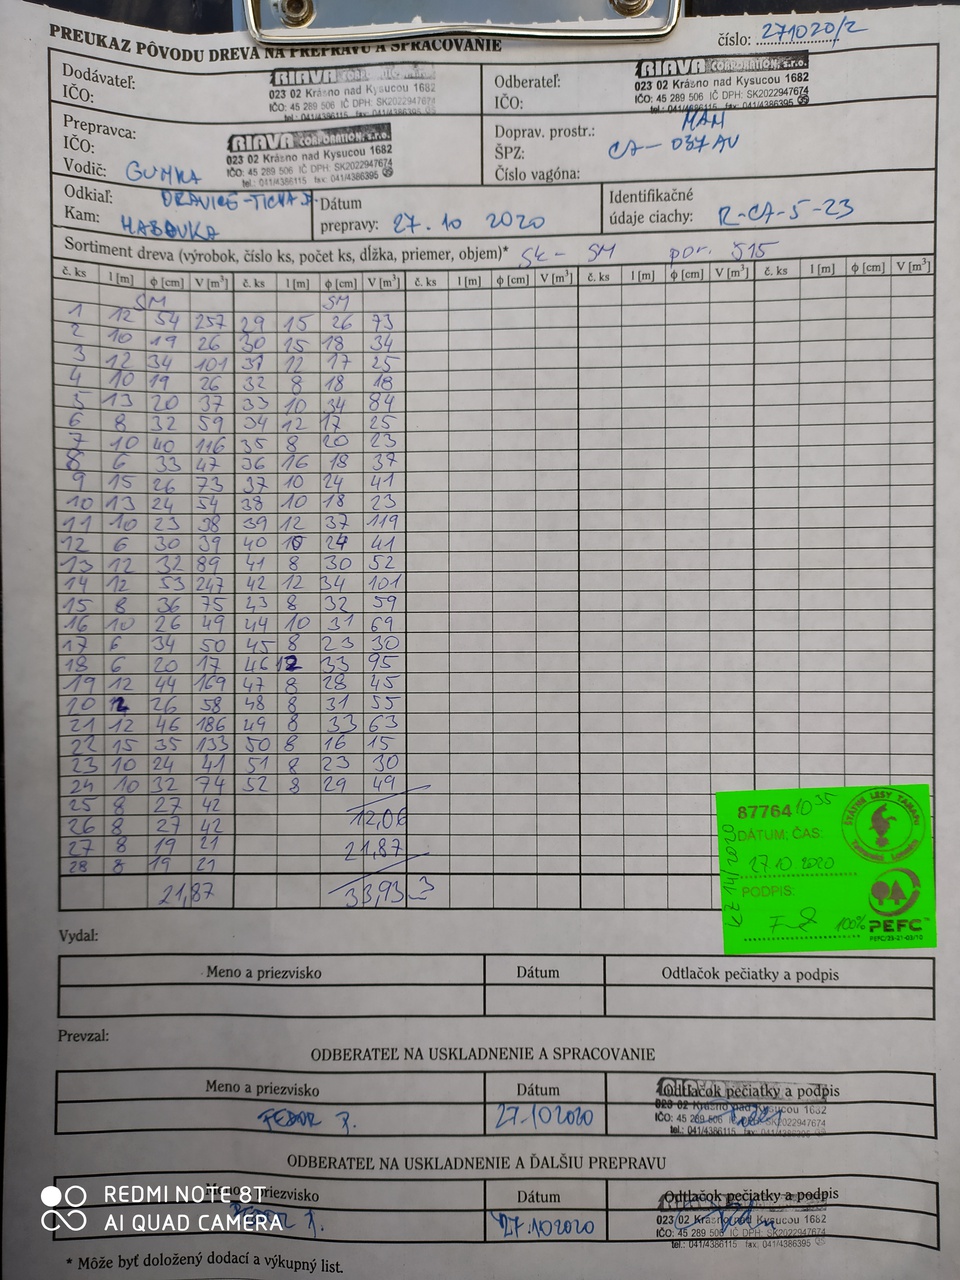 PREUKAZ PÔVODU DREVA NA PREPRAVU A SPRACOVANIE
číslo: 271020/2
Dodávateľ:
IČO:
RIAVA CORPORATION, s.r.o.
023 02 Krásno nad Kysucou 1682
IČO: 45 289 506 IČ DPH: SK2022947674
tel.: 041/4386115 fax: 041/4386395
Odberateľ:
IČO:
RIAVA CORPORATION, s.r.o.
023 02 Krásno nad Kysucou 1682
IČO: 45 289 506 IČ DPH: SK2022947674
tel.: 041/4386115 fax: 041/4386395
Prepravca:
IČO:
Vodič: GUMKA
RIAVA CORPORATION, s.r.o.
023 02 Krásno nad Kysucou 1682
IČO: 45 289 506 IČ DPH: SK2022947674
tel.: 041/4386115 fax: 041/4386395
Doprav. prostr.: MAN
ŠPZ: CA-037AU
Číslo vagóna:
Odkiaľ: ORAVICE-TICHÁ D.
Kam: HABOVKA
Dátum
prepravy: 27. 10 2020
Identifikačné
údaje ciachy: R-CA-5-23
Sortiment dreva (výrobok, číslo ks, počet ks, dĺžka, priemer, objem)* SK - SM por. 515
č. ks l [m] ϕ [cm] V [m³] č. ks l [m] ϕ [cm] V [m³] č. ks l [m] ϕ [cm] V [m³] č. ks l [m] ϕ [cm] V [m³] č. ks l [m] ϕ [cm] V [m³]
SM SM
1 12 54 257 29 15 26 73
2 10 19 26 30 15 18 34
3 12 34 101 31 12 17 25
4 10 19 26 32 8 18 18
5 13 20 37 33 10 34 84
6 8 32 59 34 12 17 25
7 10 40 116 35 8 20 23
8 6 33 47 36 16 18 37
9 15 26 73 37 10 24 41
10 13 24 54 38 10 18 23
11 10 23 38 39 12 37 119
12 6 30 39 40 10 24 41
13 12 32 89 41 8 30 52
14 12 53 247 42 12 34 101
15 8 36 75 43 8 32 59
16 10 26 49 44 10 31 69
17 6 34 50 45 8 23 30
18 6 20 17 46 12 33 95
19 12 44 169 47 8 28 45
20 12 26 58 48 8 31 55
21 12 46 186 49 8 33 63
22 15 35 133 50 8 16 15
23 10 24 41 51 8 23 30
24 10 32 74 52 8 29 49
25 8 27 42
26 8 27 42 12,06
27 8 19 21 21,87
28 8 19 21
21,87 33,93
87764 10 35
DÁTUM, ČAS:
27 10 2020
PODPIS:
KZ 14/2020
ŠTÁTNE LESY TANAPU
100%
PEFC
PEFC/25-21-03/10
Vydal:
Meno a priezvisko Dátum Odtlačok pečiatky a podpis
Prevzal:
ODBERATEĽ NA USKLADNENIE A SPRACOVANIE
Meno a priezvisko Dátum Odtlačok pečiatky a podpis
FEDOR P. 27.10 2020
023 02 Krásno nad Kysucou 1682
IČO: 45 289 506 IČ DPH: SK2022947674
tel.: 041/4386115 fax: 041/4386395
ODBERATEĽ NA USKLADNENIE A ĎALŠIU PREPRAVU
Meno a priezvisko Dátum Odtlačok pečiatky a podpis
FEDOR P. 27.10 2020
023 02 Krásno nad Kysucou 1682
IČO: 45 289 506 IČ DPH: SK2022947674
tel.: 041/4386115 fax: 041/4386395
* Môže byť doložený dodací a výkupný list.
REDMI NOTE 8T
AI QUAD CAMERA